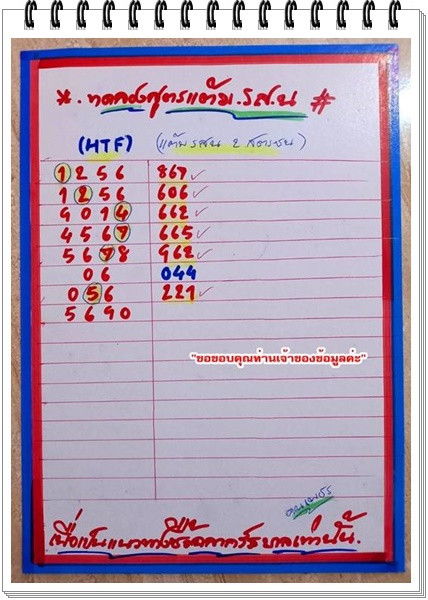 * . ทดลองสูตรแต้ม.รส.น #
(HTF) (แต้ม รสน 2 สูตรชน)
1256 867 ✓
1256 606 ✓
9014 662 ✓
4567 665 ✓
5678 962 ✓
06 044
056 221 ✓
5690
"ขอขอบคุณท่านเจ้าของข้อมูลค่ะ"
เพื่อเป็นแนวทางซื้อสลากรัฐบาลเท่านั้น.